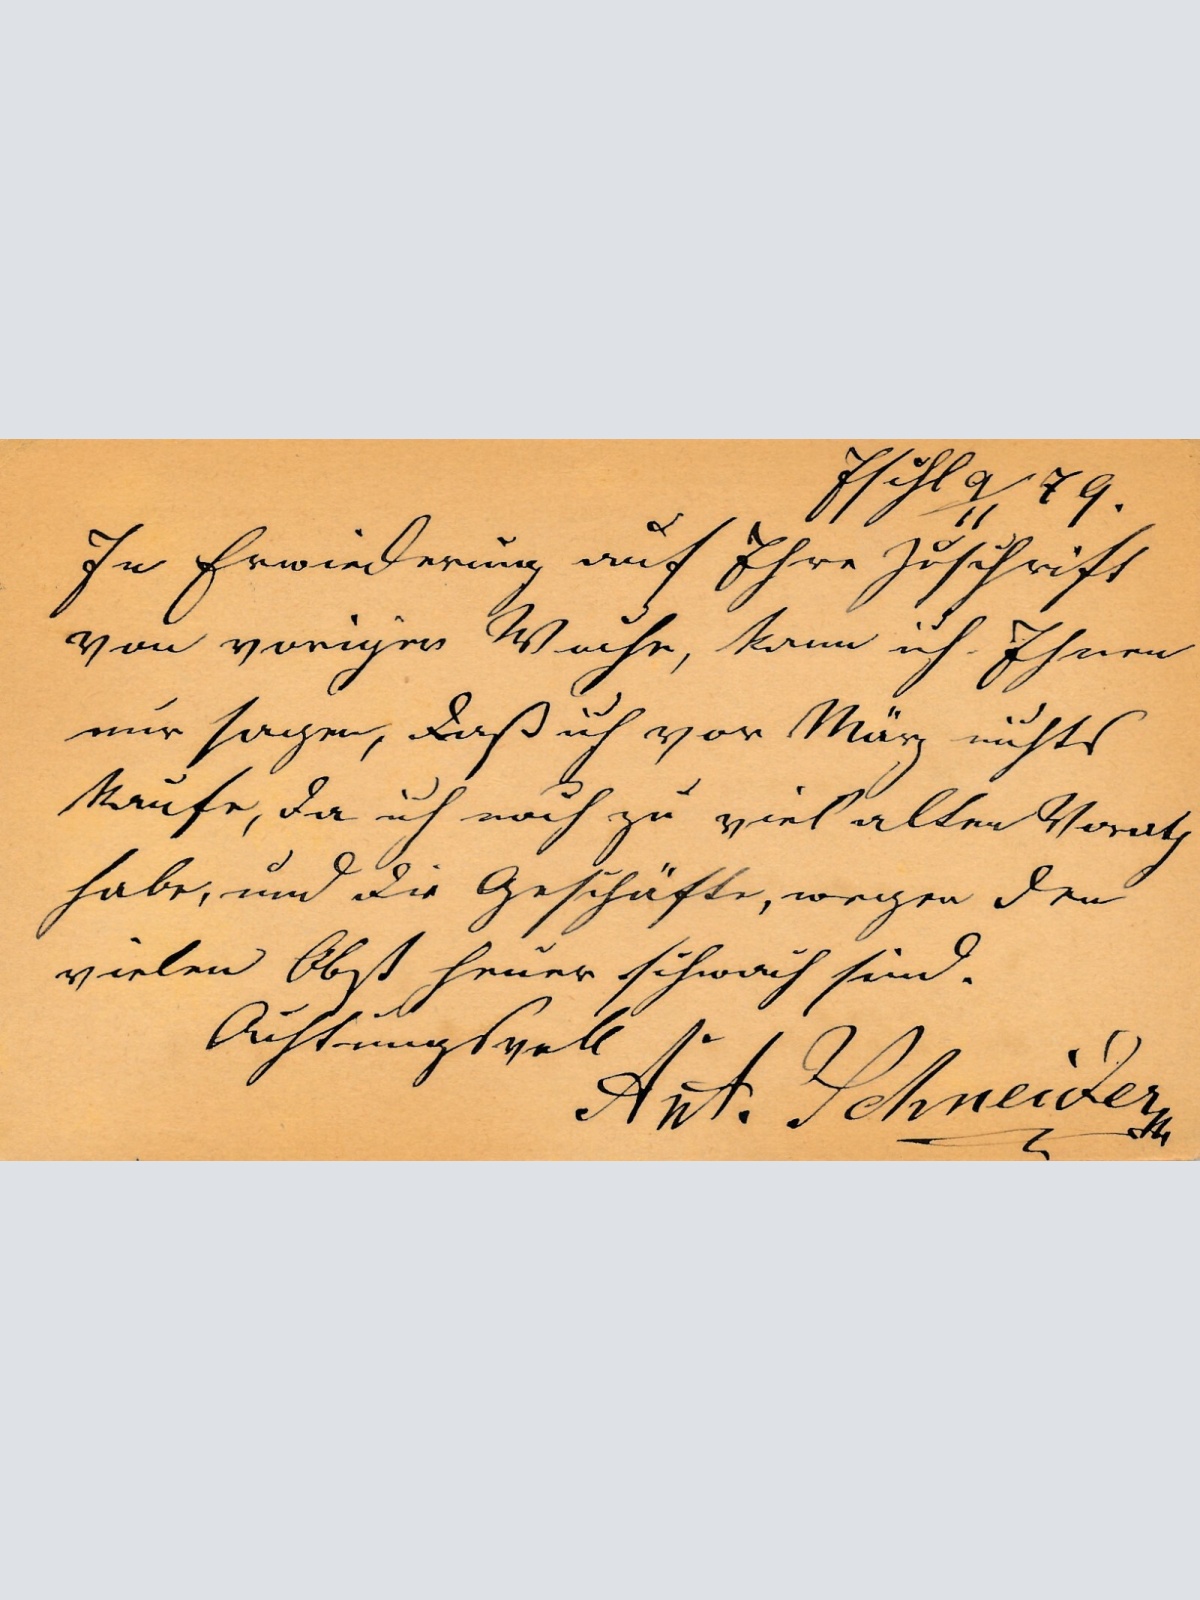 Ischl 9/11 79.
In Erwiederung auf Ihre Zuschrift
von voriger Woche, kann ich Ihnen
nur sagen, daß ich vor März nichts
kaufe, da ich noch zu viel alten Vorath
habe, und die Geschäfte, wegen den
vielen Obst heuer schwach sind.
Achtungsvoll
Ant. Schneider